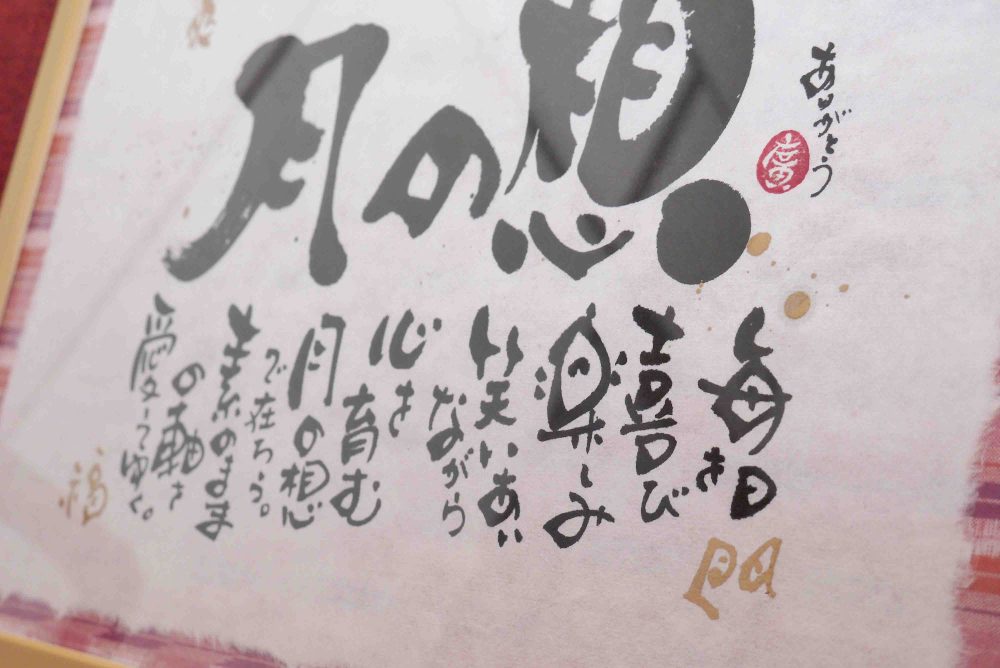 ありがとう
想の月
毎日を
喜び
楽しみ
笑いあい
ながら
心を
育む
月の想
で在ろう。
素のまま
の軸を
愛してゆく。
門
福